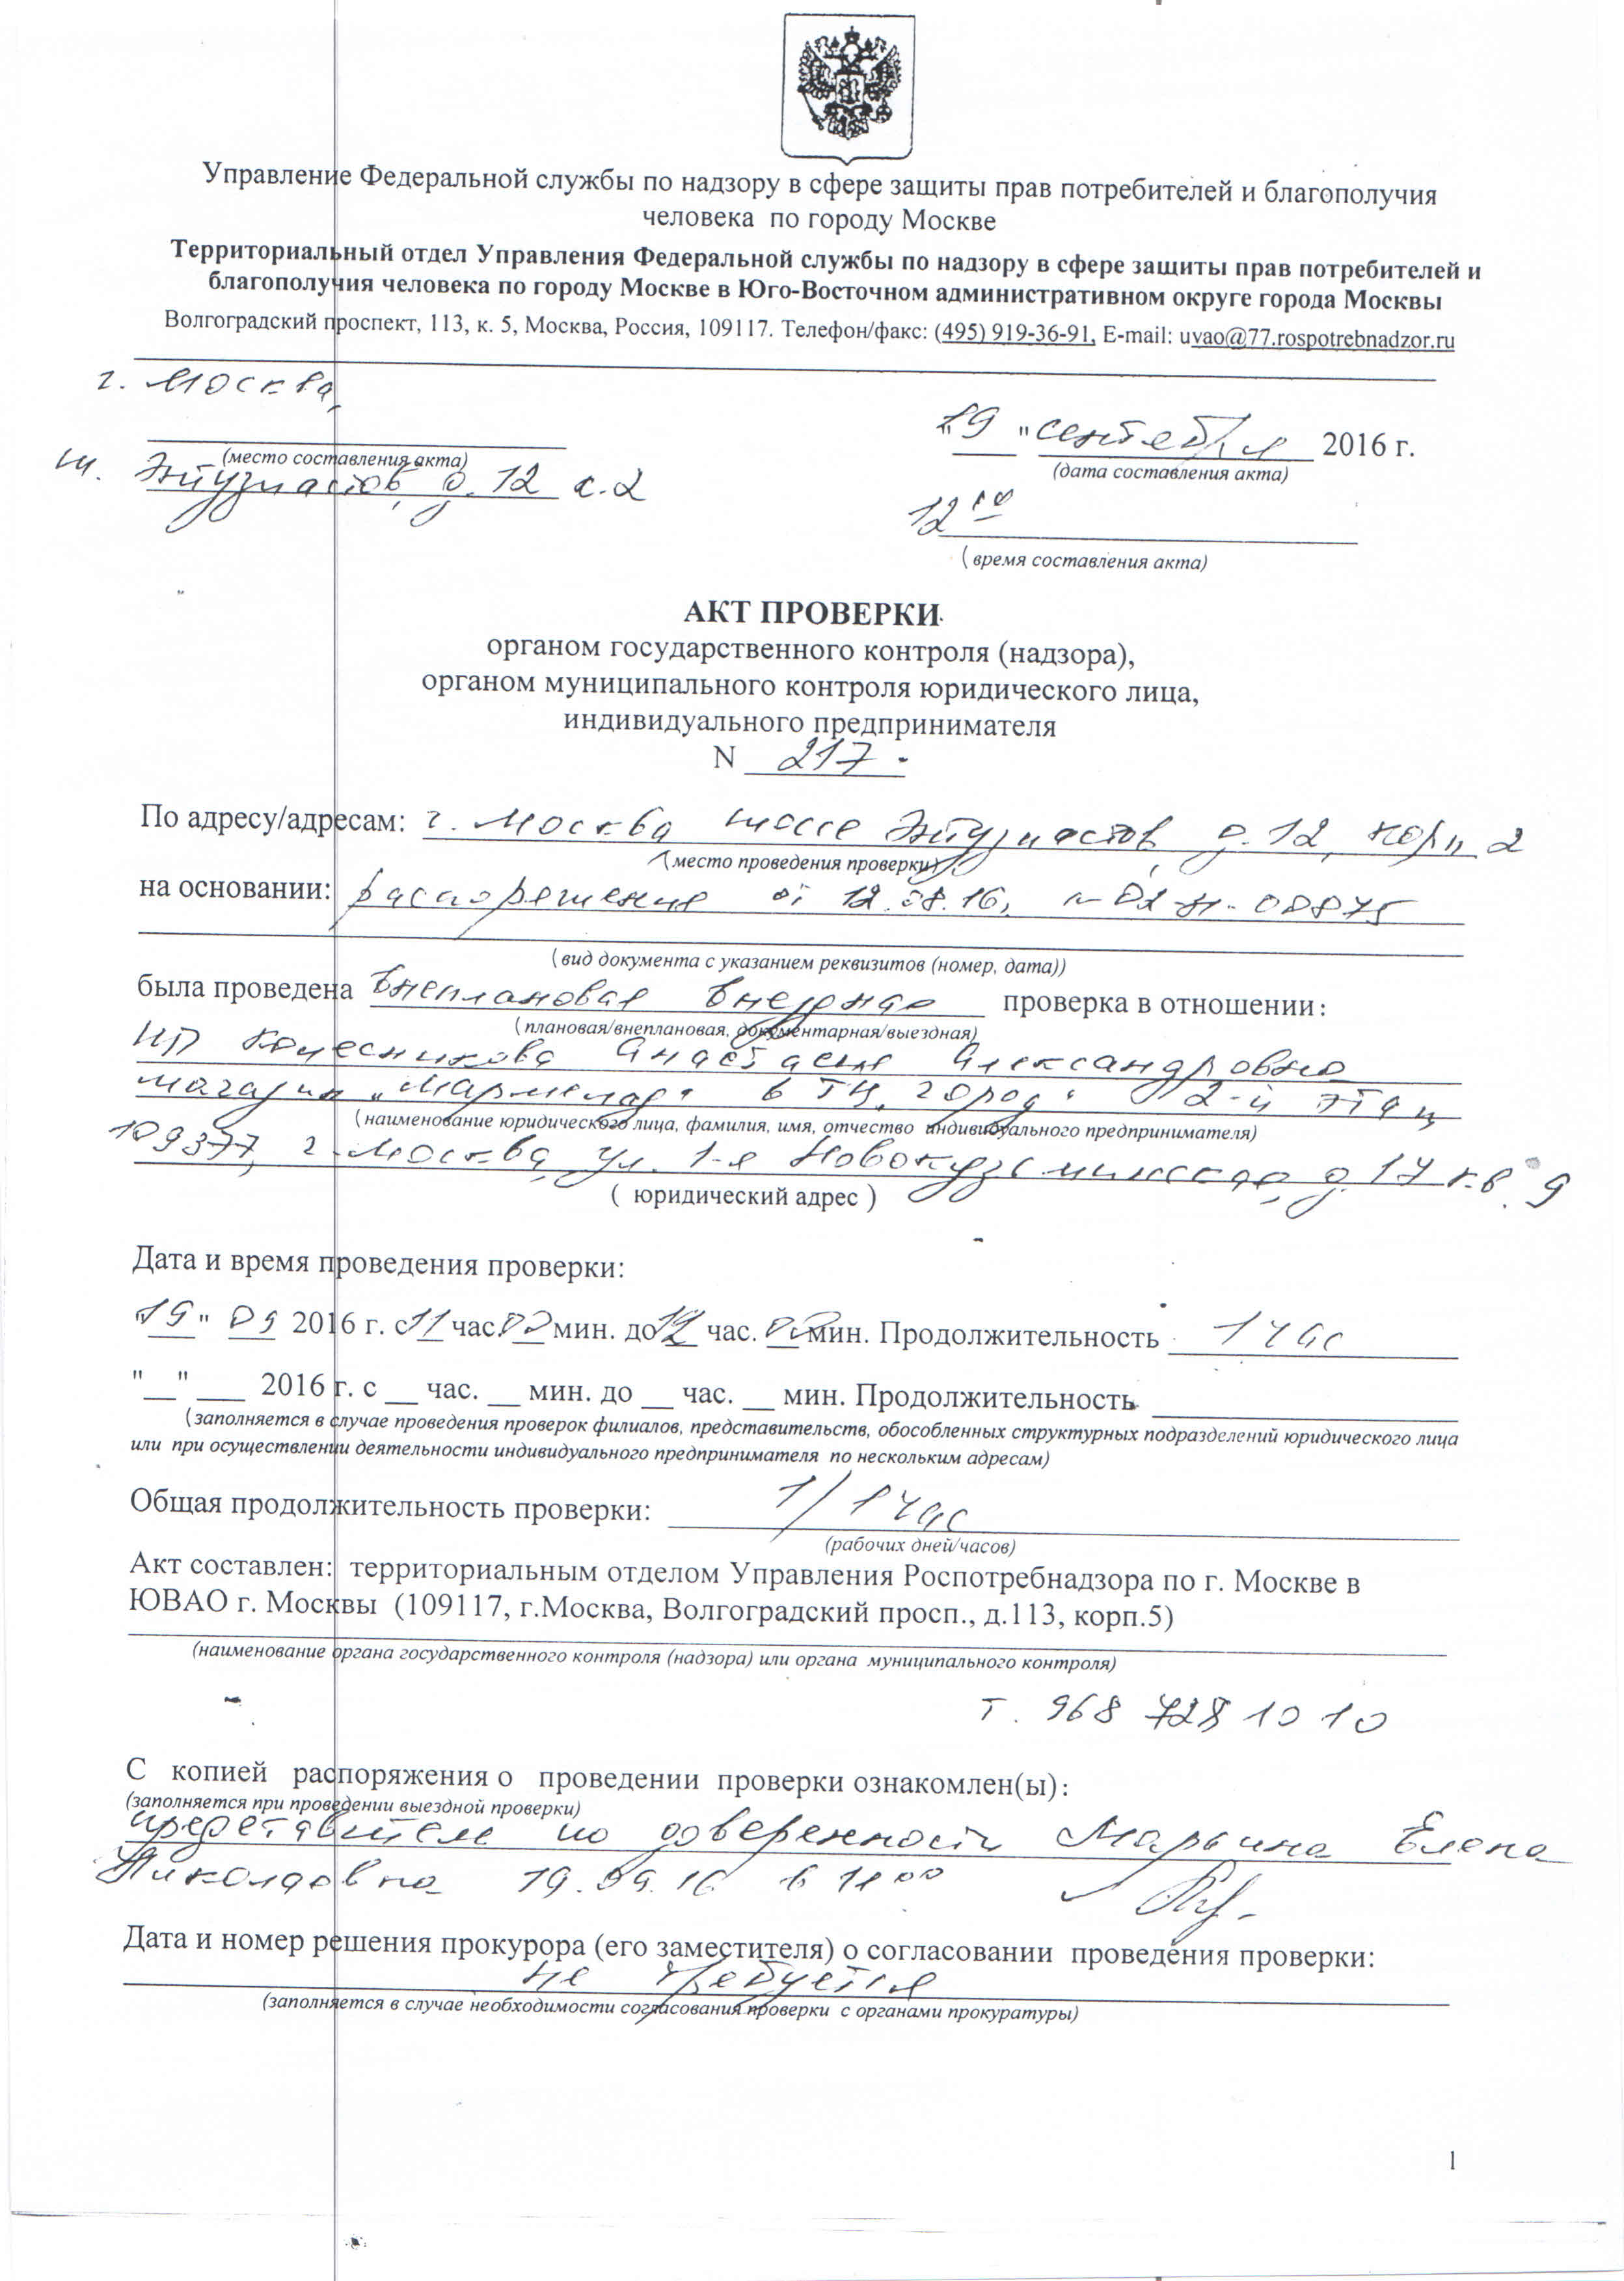 Управление Федеральной службы по надзору в сфере защиты прав потребителей и благополучия
человека по городу Москве
Территориальный отдел Управления Федеральной службы по надзору в сфере защиты прав потребителей и
благополучия человека по городу Москве в Юго-Восточном административном округе города Москвы
Волгоградский проспект, 113, к. 5, Москва, Россия, 109117. Телефон/факс: (495) 919-36-91, E-mail: uvao@77.rospotrebnadzor.ru
г. Москва,
"19 " сентября 2016 г.
(место составления акта)
(дата составления акта)
ш. Энтузиастов, д. 12 к.2
12 00
( время составления акта)
АКТ ПРОВЕРКИ
органом государственного контроля (надзора),
органом муниципального контроля юридического лица,
индивидуального предпринимателя
N 217
По адресу/адресам: г. Москва шоссе Энтузиастов, д. 12, корп. 2
(место проведения проверки)
на основании: распоряжения от 12.08.16,
(вид документа с указанием реквизитов (номер, дата))
была проведена внеплановая выездная проверка в отношении:
(плановая/внеплановая, документарная/выездная)
ИП Колесникова Анастасия Александровна
магазин "Мармелад" в ТЦ "Город" 2-й этаж
(наименование юридического лица, фамилия, имя, отчество индивидуального предпринимателя)
109377, г. Москва, ул. 1-я Новокузьминская, д. 17 кв. 9
( юридический адрес )
Дата и время проведения проверки:
"19" 09 2016 г. с 11 час. 00 мин. до 12 час. 00 мин. Продолжительность 1 час
"__" ___ 2016 г. с __ час. __ мин. до __ час. __ мин. Продолжительность
(заполняется в случае проведения проверок филиалов, представительств, обособленных структурных подразделений юридического лица
или при осуществлении деятельности индивидуального предпринимателя по нескольким адресам)
Общая продолжительность проверки: 1/ 1 час
(рабочих дней/часов)
Акт составлен: территориальным отделом Управления Роспотребнадзора по г. Москве в
ЮВАО г. Москвы (109117, г.Москва, Волгоградский просп., д.113, корп.5)
(наименование органа государственного контроля (надзора) или органа муниципального контроля)
т. 968 728 10 10
С копией распоряжения о проведении проверки ознакомлен(ы):
(заполняется при проведении выездной проверки)
представитель по доверенности Марьина Елена
Николаевна 19.09.16 в 11 00
Дата и номер решения прокурора (его заместителя) о согласовании проведения проверки:
не требуется
(заполняется в случае необходимости согласования проверки с органами прокуратуры)
1